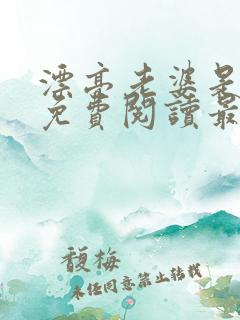 漂亮老婆是
免費閱讀最
馥梅
未經同意禁止轉載